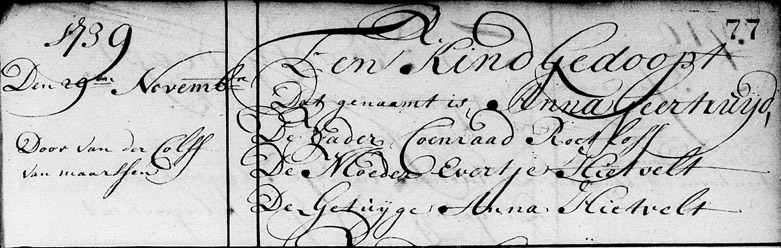 1739
77
Den 29ten Novembr
Een Kind Gedoopt
Dat genaamt is, Anna Geertruijd,
Door van der Colff
van maarssen
De Vader Coenraad Roeloff
De Moeder Evertje Hietvelt
De Getuijge Anna Hietvelt